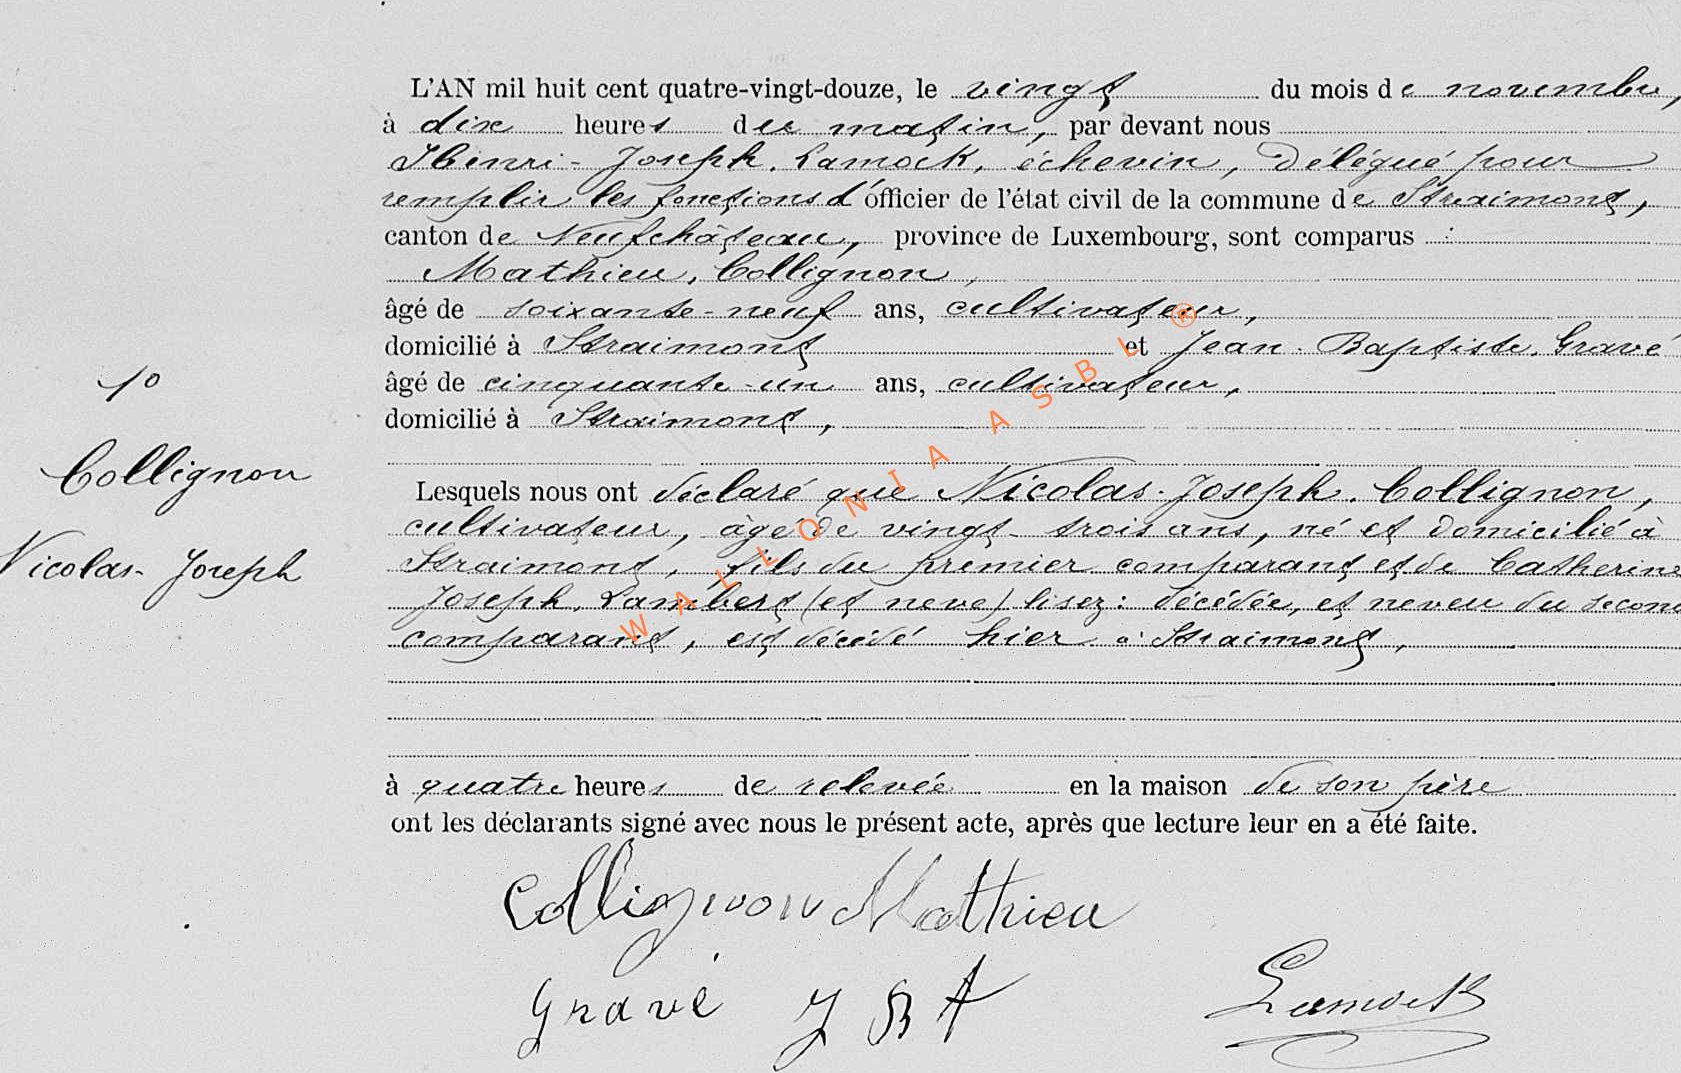 L'AN mil huit cent quatre-vingt-douze, le vingt du mois de novembre,
à dix heures du matin, par devant nous
Henri-Joseph Lamock, échevin, délégué pour
remplir les fonctions d'officier de l'état civil de la commune de Straimont,
canton de Neufchâteau, province de Luxembourg, sont comparus :
Mathieu Collignon,
âgé de soixante-neuf ans, cultivateur,
domicilié à Straimont et Jean-Baptiste Gravé
âgé de cinquante-un ans, cultivateur,
domicilié à Straimont,
1°
Collignon
Nicolas-Joseph
Lesquels nous ont déclaré que Nicolas-Joseph Collignon,
cultivateur, âgé de vingt-trois ans, né et domicilié à
Straimont, fils du premier comparant et de Catherine
Joseph Lambert (et neve) lisez: décédée, et neveu du second
comparant, est décédé hier à Straimont,
à quatre heures de relevée en la maison de son père
ont les déclarants signé avec nous le présent acte, après que lecture leur en a été faite.
Collignon Mathieu
Gravé J Bt
Lamock
WALLONIA ASBL ®